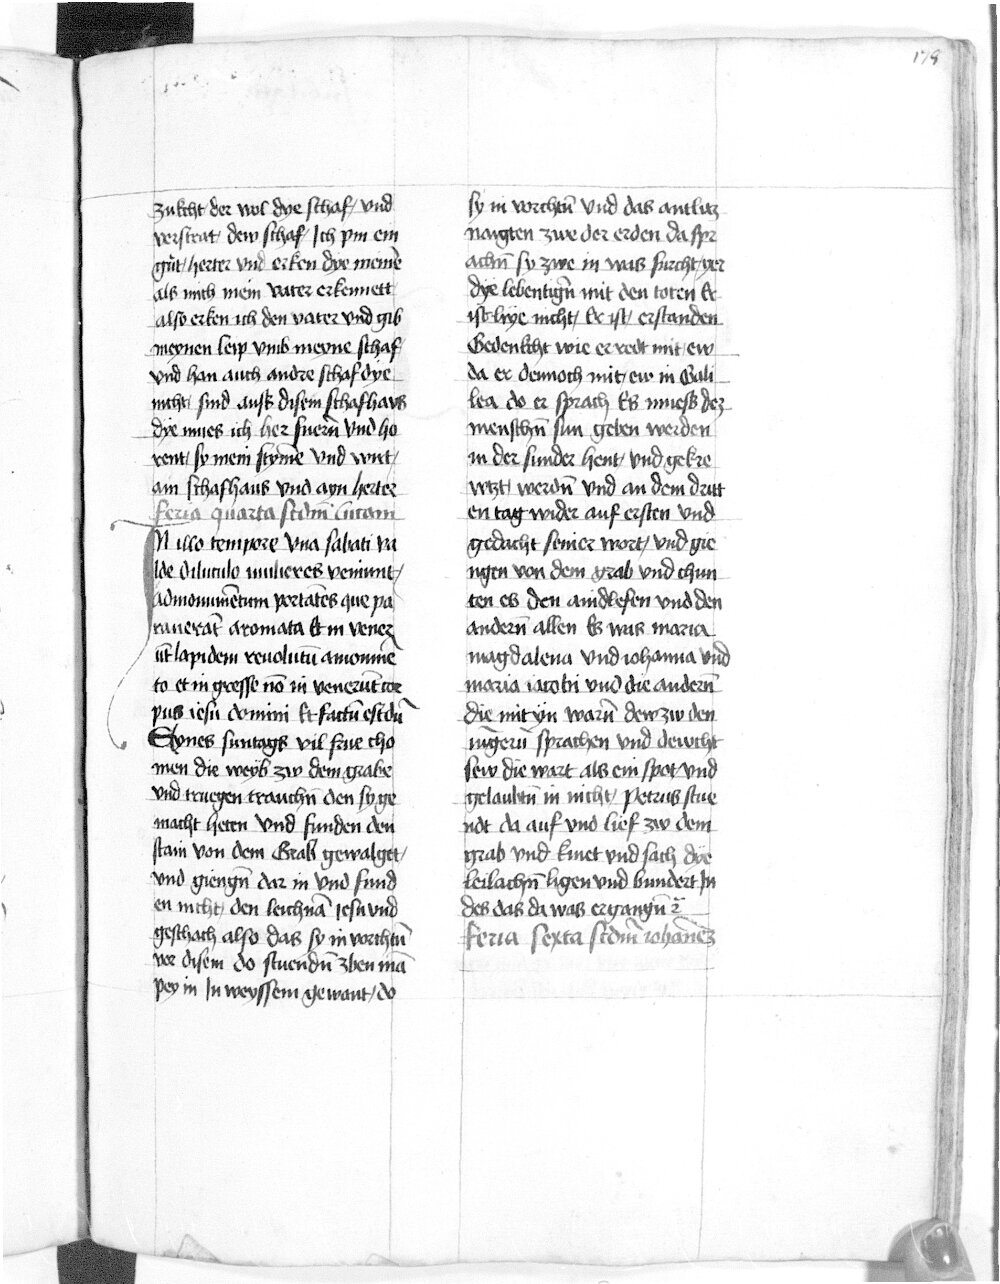 178
zukcht der wol dye schaf / vnd
verstrat / dew schaf / Ich pm ein
gůt / herter vnd erken dye meinē
als mich mein vater erkennett
also erken ich den vater vnd gib
meynen leip vmb meyne schaf
vnd han auch andre schaf dye
nicht / sind ausz disem schafhavs
dye mues ich her fuerñ vnd ho
rent / sy mein stym̄e vnd wirt /
ain schafhaus vnd ayn herter
feria quarta scdm̄ lucam
IN illo tempore vna sabati va
lde diluculo mulieres veniunt /
ad monumētum portātes que pa
rauerāt aromata Et in vener
ūt lapidem reuolutū a monumē
to et in gresse nō in venerūt cor
pus iesu domini Et factū est dū
Eynes suntags vil frue cho
men die weyb zw dem grabe
vnd truegen crauchñ den sy ge
macht heten vnd funden den
stain von dem Grab gewalget /
vnd giengñ dar in vnd fund
en nicht / den leichnā iesu vnd
geschach also das sy in vorchtñ
vor disem do stuendñ zben mā
pey in In weyssem gewant / do
sy in vorchtñ vnd das antlutz
naigten zwe der erden da spr
achñ sy zwe in was surcht / yer
dye lebentigñ mit den toten Er
ist hye nicht / Er ist / erstanden
Gedenkcht wie er redt mit / ew
da er dennoch mit / ew in Gali
lea do er sprach Es muesz dez
menschñ sun geben werden
in der sunder hent / vnd gekre
wtzt / werdñ vnd an dem dritt
en tag wider auf ersten vnd
gedacht seiner wort / vnd gie
ngen von dem grab vnd chun
ten es den aindlefen vnd den
anderñ allen Es was maria
magdalena vnd iohanna vnd
maria iacobi vnd die anderñ
die mit yn warñ dew zw den
iūgerñ sprachen vnd dewcht
sew die wart als ein spot / vnd
gelaubtñ in nicht / Petrus stue
ndt da auf vnd lief zw dem
grab vnd kniet vnd sach dye
leilachñ ligen vnd bundert In
des das da was ergangñ
feria sexta scdm̄ iohānez